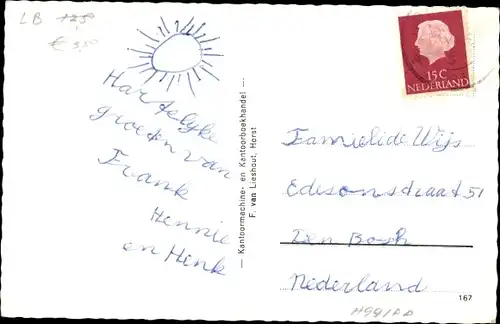 LB 12,50
€ 3,50
Hartelijke
groeten van
Frank
Hennie
en Henk
— Kantoormachine- en Kantoorboekhandel —
F. van Lieshout, Horst
15 C
NEDERLAND
Familie de Wijs
Edisonstraat 51
Den Bosch
Nederland
167